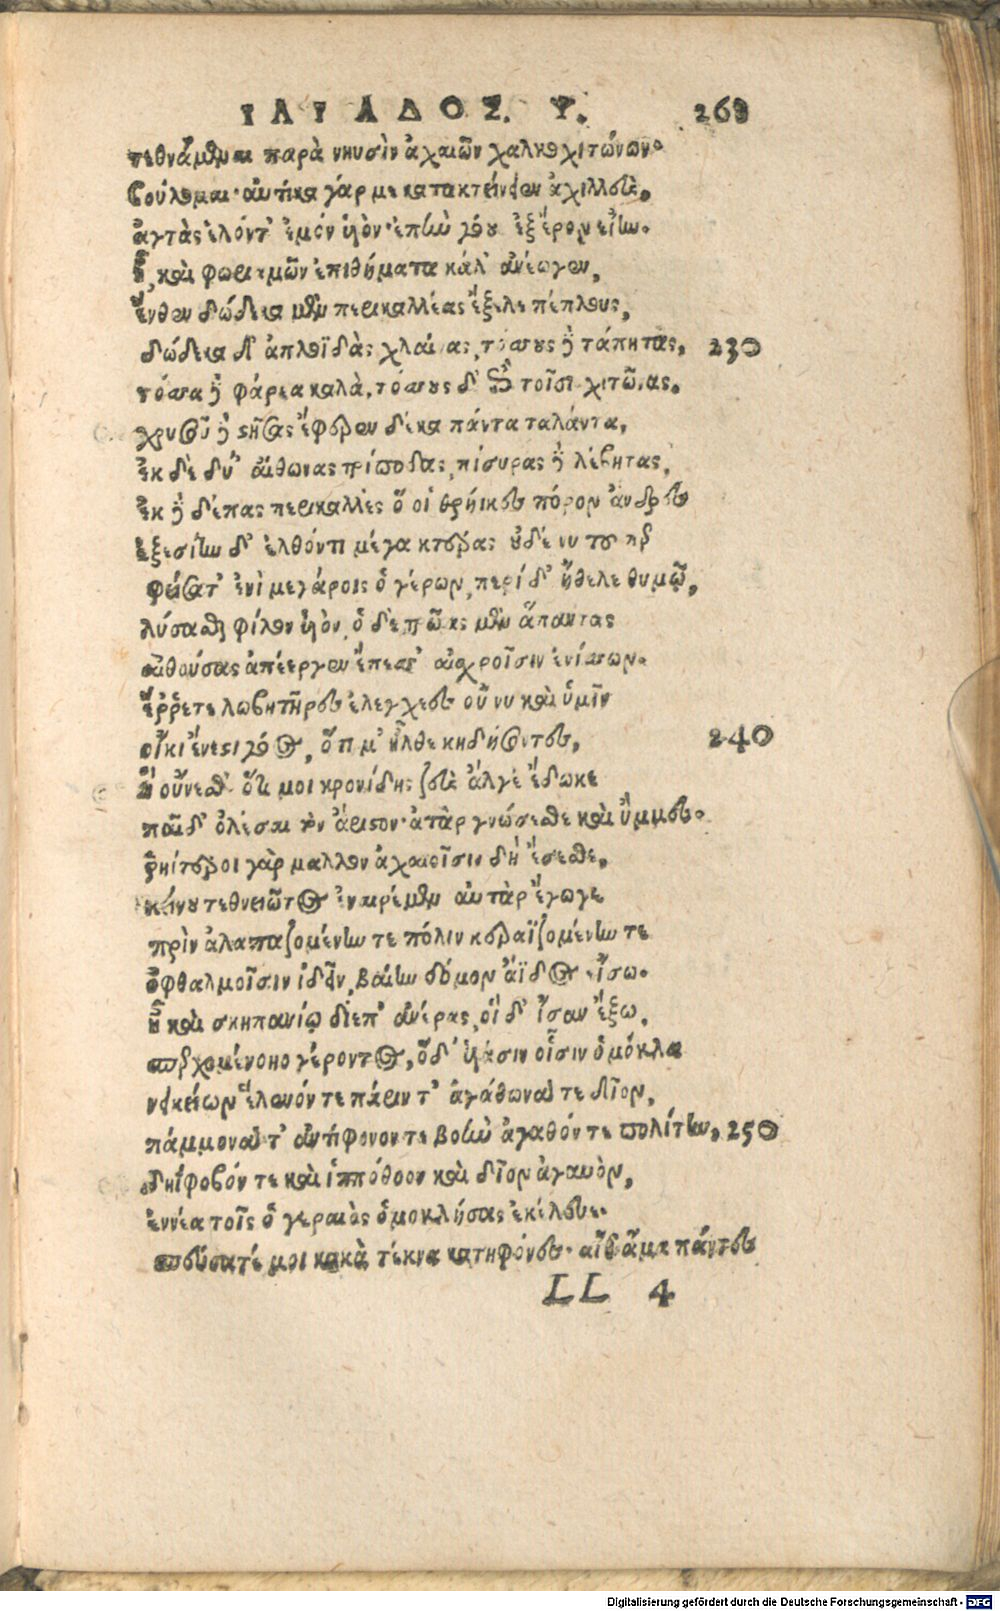 ΙΛΙΑΔΟΣ. Ψ. 269
τεθνάμεναι παρὰ νηυσὶν ἀχαιῶν χαλκοχιτώνων·
βούλομαι· αὐτίκα γάρ με κατακτείνειεν ἀχιλλεὺς,
ἀγκὰς ἑλόντ' ἐμὸν υἱὸν· ἐπὴν γόου ἐξ ἔρον εἵην.
ἦ, καὶ φωριαμῶν ἐπιθήματα κάλ' ἀνέωγεν,
ἔνθεν δώδεκα μὲν περικαλλέας ἔξελε πέπλους,
δώδεκα δ' ἁπλοΐδας χλαίνας, τόσσους δὲ τάπητας, 230
τόσσα δὲ φάρεα καλὰ, τόσσους δ' ἐπὶ τοῖσι χιτῶνας.
χρυσοῦ δὲ στήσας ἔφερεν δέκα πάντα τάλαντα,
ἐκ δὲ δύ' αἴθωνας τρίποδας, πίσυρας δὲ λέβητας,
ἐκ δὲ δέπας περικαλλὲς ὅ οἱ θρήικες πόρον ἄνδρες
ἐξεσίην δ' ἐλθόντι μέγα κτέρας οὐδέ νυ του περ
φείσατ' ἐνὶ μεγάροις ὁ γέρων, περὶ δ' ἤθελε θυμῷ,
λύσασθαι φίλον υἱὸν, ὁ δὲ τρῶας μὲν ἅπαντας
αἰθούσας ἀπέεργεν ἔπεσσ' αἰσχροῖσιν ἐνίσσων.
ἔῤῥετε λωβητῆρες ἐλεγχέες οὔ νυ καὶ ὑμῖν
οἴκι ἔνεστι γόος, ὅτι μ' ἤλθε κηδήσοντες, 240
ἦ οὔνεσθ' ὅτι μοι κρονίδης ζεὺς ἄλγε' ἔδωκε
παῖδ' ὀλέσαι τὸν ἄριστον· ἀτὰρ γνώσεσθε καὶ ὔμμες·
ῥηίτεροι γὰρ μᾶλλον ἀχαιοῖσιν δὴ ἔσεσθε,
κείνου τεθνειῶτος ἐναιρέμεν αὐτὰρ ἔγωγε
πρὶν ἀλαπαζομένην τε πόλιν κεραϊζομένην τε
ὀφθαλμοῖσιν ἰδεῖν, βαίην δόμον ἄϊδος εἴσω.
ἦ καὶ σκηπανίῳ δίεπ' ἀνέρας, οἱ δ' ἴσαν ἔξω,
σπερχομένοιο γέροντος, ὅδ' υἱάσιν οἷσιν ὁμόκλα
νεικείων ἕλενόν τε πάριν τ' ἀγάθωνά τε δῖον,
πάμμονά τ' ἀντίφονόν τε βοὴν ἀγαθόν τε πολίτην, 250
δηΐφοβόν τε καὶ ἱππόθοον καὶ δῖον ἀγαυὸν,
ἐννέα τοῖς ὁ γεραιὸς ὁμοκλήσας ἐκέλευε.
σπεύσατέ μοι κακὰ τέκνα κατηφόνες· αἴθ' ἅμα πάντες
LL 4
Digitalisierung gefördert durch die Deutsche Forschungsgemeinschaft - DFG